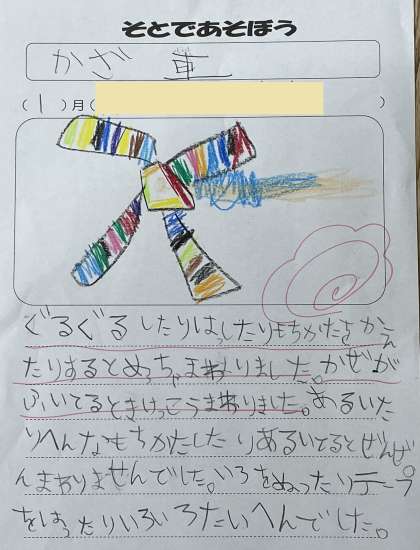 そとであそぼう
かざ車
(1)月( )
ぐるぐるしたりはしったりもちかたをかえ
たりするとめっちゃまわりました。かぜが
ふいてるときけっこうまわりました。あるいた
りへんなもちかたしたりあるいてるとぜんぜ
んまわりませんでした。いろをぬったりテープ
をはったりいろいろたいへんでした。